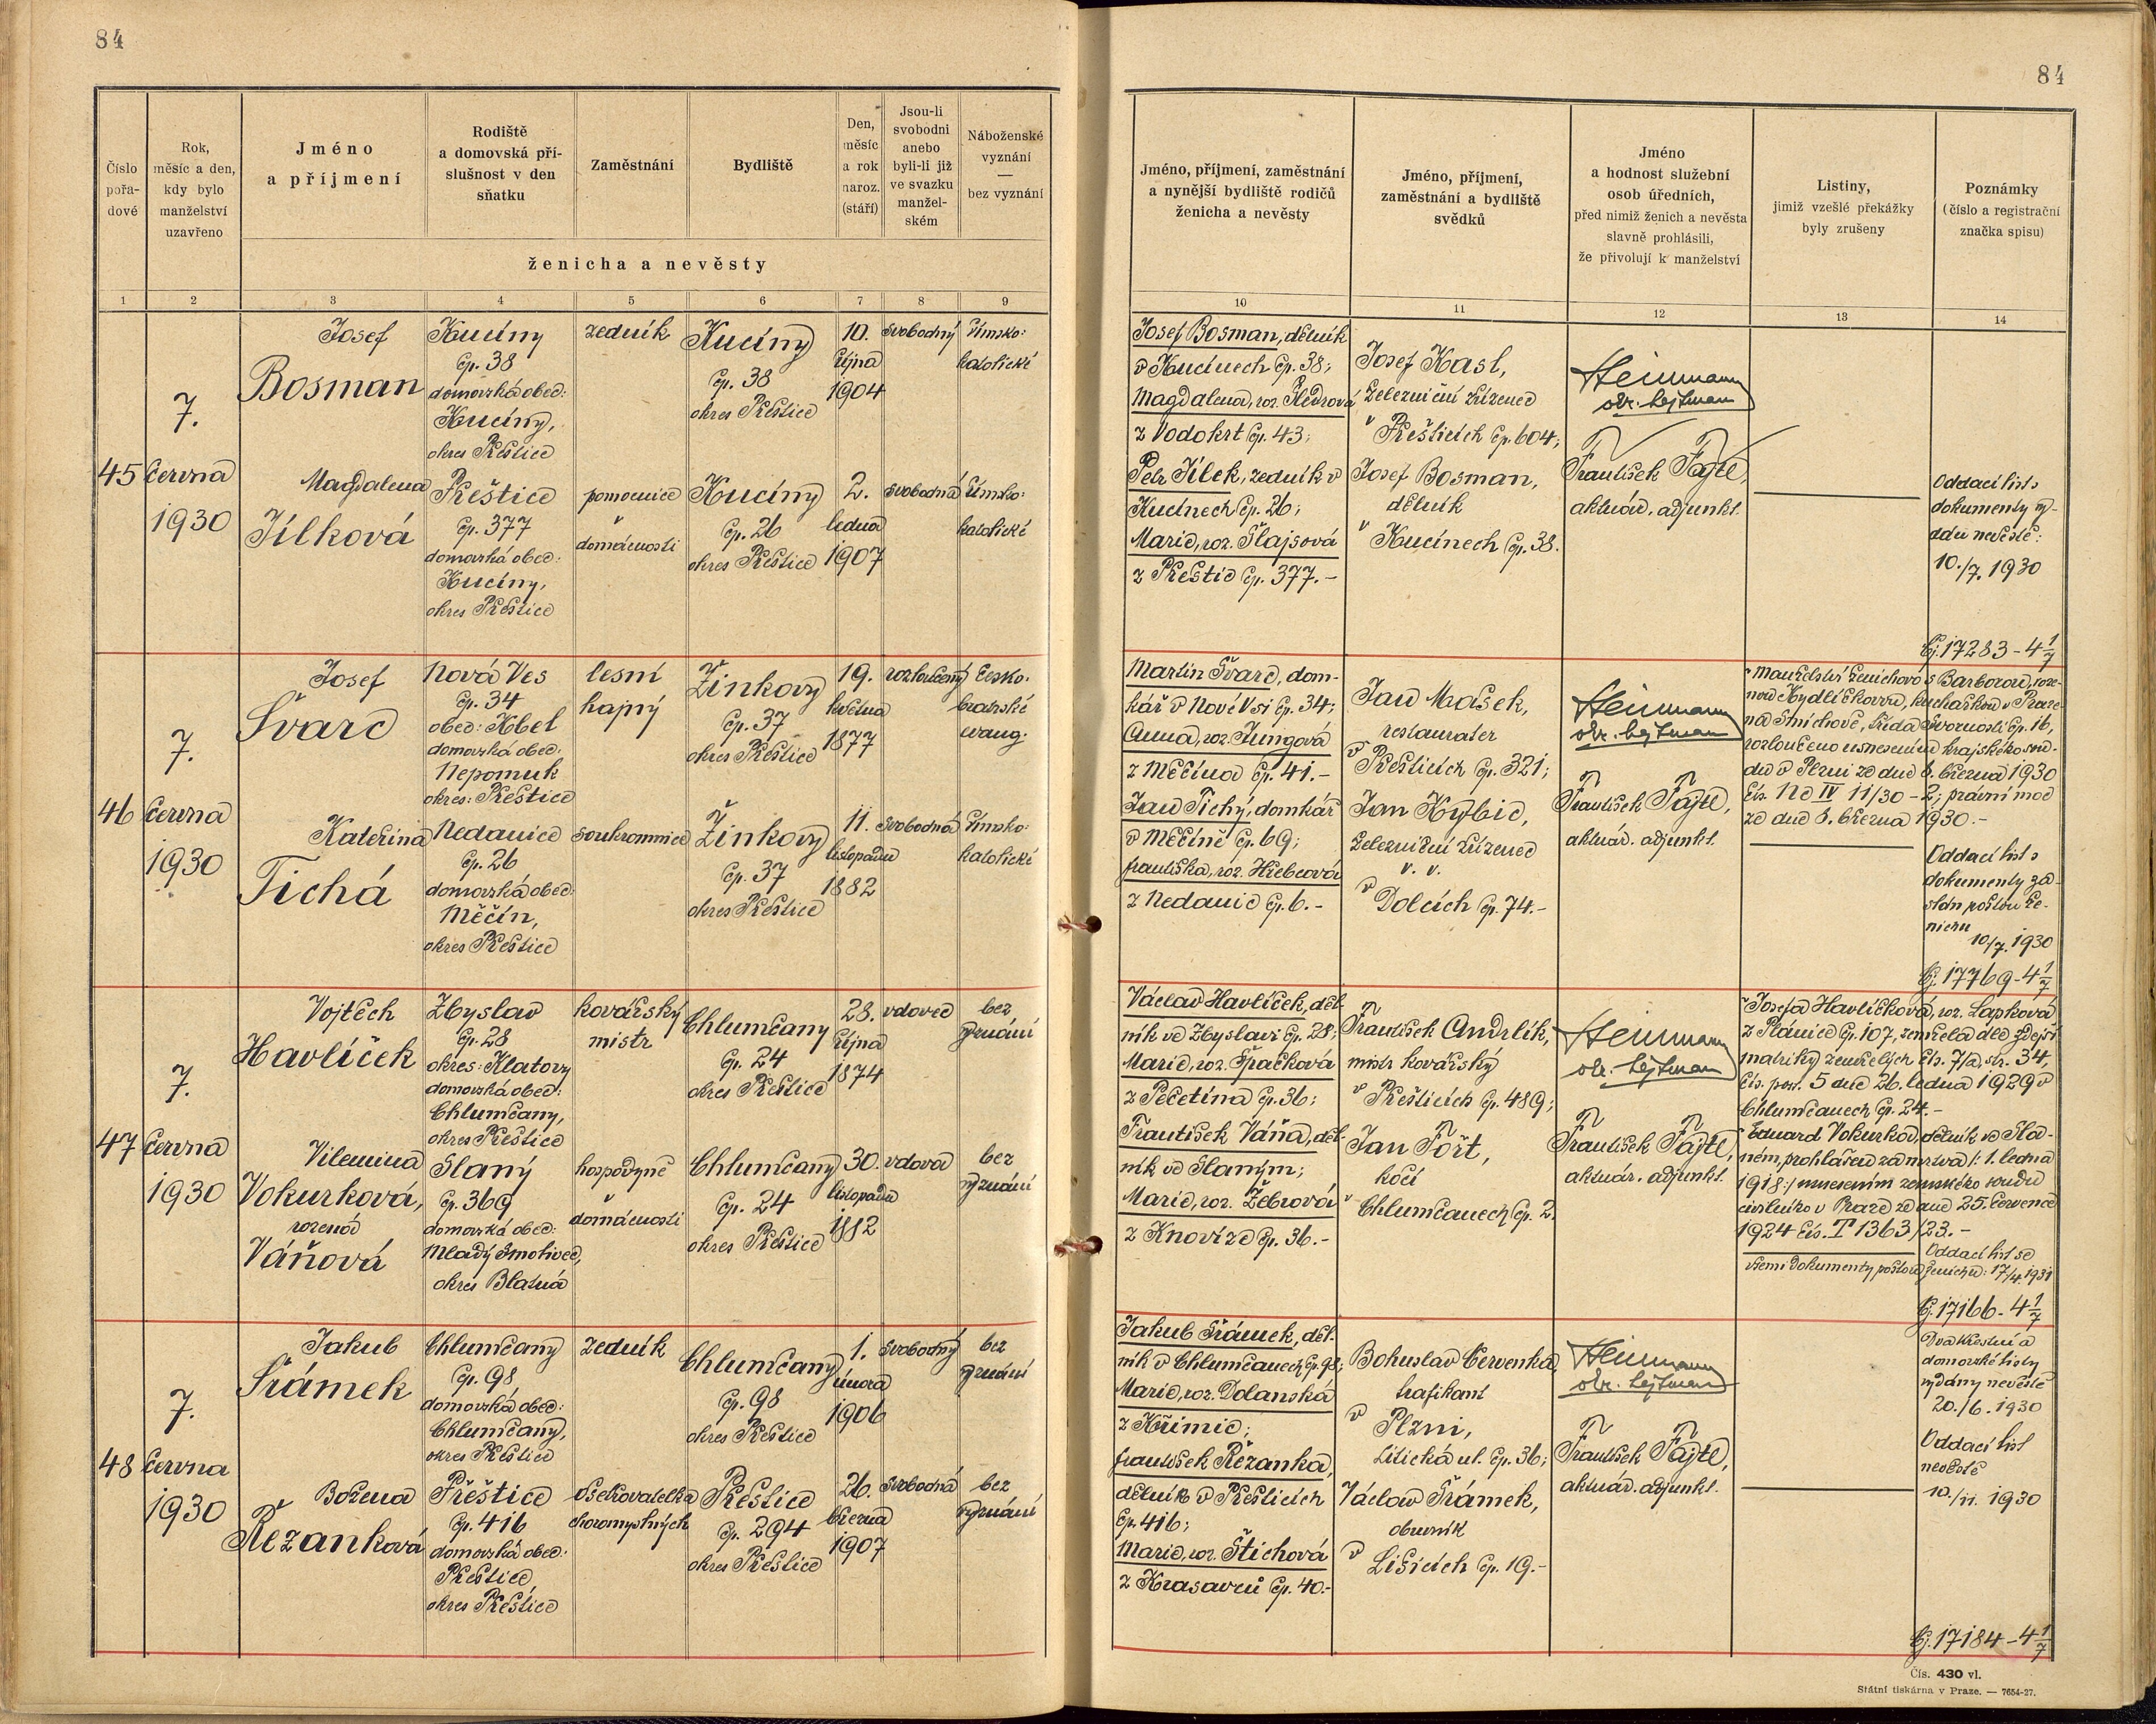 84
84
Číslo pořadové
Rok, měsíc a den, kdy bylo manželství uzavřeno
Jméno a příjmení
Rodiště a domovská příslušnost v den sňatku
Zaměstnání
Bydliště
Den, měsíc a rok naroz. (stáří)
Jsou-li svobodni anebo byli-li již ve svazku manželském
Náboženské vyznání — bez vyznání
ženicha a nevěsty
Jméno, příjmení, zaměstnání a nynější bydliště rodičů ženicha a nevěsty
Jméno, příjmení, zaměstnání a bydliště svědků
Jméno a hodnost služební osob úředních, před nimiž ženich a nevěsta slavně prohlásili, že přivolují k manželství
Listiny, jimiž vzešlé překážky byly zrušeny
Poznámky (číslo a registrační značka spisu)
1 2 3 4 5 6 7 8 9 10 11 12 13 14
45
7.
června
1930
Josef
Bosman
Kucíny
čp. 38
domovská obec:
Kucíny,
okres Přeštice
zedník
Kucíny
čp. 38
okres Přeštice
10.
října
1904
svobodný
římsko-
katolické
Magdalena
Jílková
Přeštice
čp. 377
domovská obec:
Kucíny,
okres Přeštice
pomocnice
v
domácnosti
Kucíny
čp. 26
okres Přeštice
2.
ledna
1907
svobodná
římsko-
katolické
Josef Bosman, dělník
v Kucínech čp. 38;
Magdalena, roz.
z Vodokrt čp. 43;
Petr Jílek, zedník v
Kucínech čp. 26;
Marie, roz. Šlajsová
z Přeštic čp. 377.-
Josef Kasl,
železniční zřízenec
v Přešticích čp. 604;
Josef Bosman,
dělník
v Kucínech čp. 38.
Heinmann
okr. hejtman
František Fajtl,
aktuár. adjunkt.
Oddací list s
dokumenty vy-
dán nevěstě:
10./7. 1930
Čj. 17283-4 1/7
46
7.
června
1930
Josef
Švarc
Nová Ves
čp. 34
obec: Kbel
domovská obec:
Nepomuk
okres: Přeštice
lesní
hajný
Žinkovy
čp. 37
okres Přeštice
19.
května
1877
rozloučený
česko-
bratrské
evang.
Kateřina
Tichá
Nedanice
čp. 26
domovská obec:
Měčín,
okres Přeštice
soukromnice
Žinkovy
čp. 37
okres Přeštice
11.
listopadu
1882
svobodná
římsko-
katolické
Martin Švarc, dom-
kář v Nové Vsi čp. 34;
Anna, roz. Jungová
z Měčína čp. 41.-
Jan Tichý, domkář
v Měčíně čp. 69;
Františka, roz. Hřebcová
z Nedanic čp. 6.-
Jan Mašek,
restauratér
v Přešticích čp. 321;
Jan Kybic,
železniční zřízenec
v. v.
v Dolcích čp. 74.-
Heinmann
okr. hejtman
František Fajtl,
aktuár. adjunkt.
Manželství ženichovo s Barborou, roze-
nou Hydlíčkovou, kuchařkou v Praze
na Smíchově, třída Svornosti čp. 16,
rozloučeno usnesením krajského sou-
du v Plzni ze dne 8. března 1930
čís. Nc IV 11/30 - 2; právní moc
ze dne 8. března 1930.-
Oddací list s
dokumenty za-
slán poštou že-
nichu
10./7. 1930
Čj. 17769-4 1/7
47
7.
června
1930
Vojtěch
Havlíček
Zbyslav
čp. 28
okres: Klatovy
domovská obec:
Chlumčany,
okres Přeštice
kovářský
mistr
Chlumčany
čp. 24
okres Přeštice
28.
října
1874
vdovec
bez
vyznání
Vilemina
Vokurková,
rozená
Váňová
Slaný
čp. 369
domovská obec:
Mladý Smolivec,
okres Blatná
hospodyně
v
domácnosti
Chlumčany
čp. 24
okres Přeštice
30.
listopadu
1882
vdova
bez
vyznání
Václav Havlíček, děl-
ník ve Zbyslavi čp. 28;
Marie, roz. Špačková
z Pečetína čp. 36;
František Váňa, děl-
ník ve Slaným;
Marie, roz. Žebrová
z Knovíze čp. 36.-
František Andrlík,
mistr kovářský
v Přešticích čp. 489;
Jan Fořt,
kočí
v Chlumčanech čp. 2.
Heinmann
okr. hejtman
František Fajtl,
aktuár. adjunkt.
Josefa Havlíčková, roz. Lapková
z Plánice čp. 107, zemřela dle zdejší
matriky zemřelých čís. 7/a, str. 34,
čís. poř. 5 dne 26. ledna 1929 v
Chlumčanech čp. 24.-
Eduard Vokurka, dělník ve Sla-
ném, prohlášen za mrtva /: 1. ledna
1918:/ usnesením zemského soudu
civilního v Praze ze dne 25. července
1924 čís. T 1363/23.-
Oddací list se
všemi dokumenty poštou ženichu: 17/4. 1931
Čj. 17166-4 1/7
48
7.
června
1930
Jakub
Šrámek
Chlumčany
čp. 98
domovská obec:
Chlumčany,
okres Přeštice
zedník
Chlumčany
čp. 98
okres Přeštice
1.
února
1906
svobodný
bez
vyznání
Božena
Řezanková
Přeštice
čp. 416
domovská obec:
Přeštice
okres Přeštice
ošetřovatelka
choromyslných
Přeštice
čp. 294
okres Přeštice
26.
března
1907
svobodná
bez
vyznání
Jakub Šrámek, děl-
ník v Chlumčanech čp. 98;
Marie, roz. Dolanská
z Křimic;
František Řezanka,
dělník v Přešticích
čp. 416;
Marie, roz. Štichová
z Krasavců čp. 40.-
Bohuslav Červenka,
trafikant
v Plzni,
Litická ul. čp. 36;
Václav Šrámek,
obuvník
v Lišicích čp. 19.-
Heinmann
okr. hejtman
František Fajtl,
aktuár. adjunkt.
Dva křestní a
domovské listy
vydány nevěstě
20./6. 1930
Oddací list
nevěstě
10./11. 1930
Čj. 17184-4 1/7
Čís. 430 vl.
Státní tiskárna v Praze. — 7654-27.